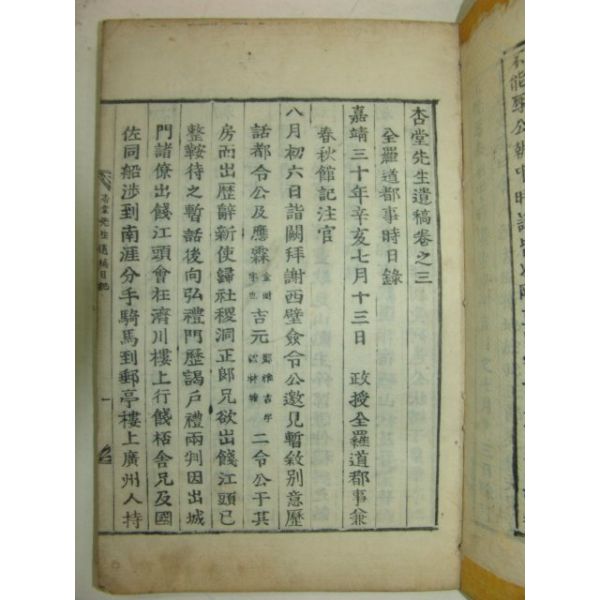 杏堂先生遺稿卷之三
全羅道都事時日錄
嘉靖三十年辛亥七月十三日 政授全羅道都事兼
春秋館記注官
八月初六日詣闕拜謝西壁僉令公邀見暫敘別意歷
話都令公及應霖 吉元 二令公于其
房而出歷辭新使歸社稷洞正郎兄欲出餞江頭已
整鞍待之暫話後向弘禮門歷謁戶禮兩判因出城
門諸僚出餞江頭會在濟川樓上行餞桮舍兄及國
佐同船涉到南涯分手騎馬到郵亭樓上廣州人持
杏堂先生遺稿日錄
一